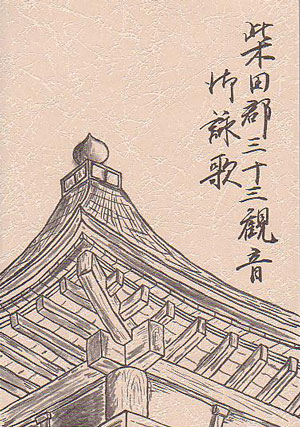 柴田郡三十三観音
御詠歌